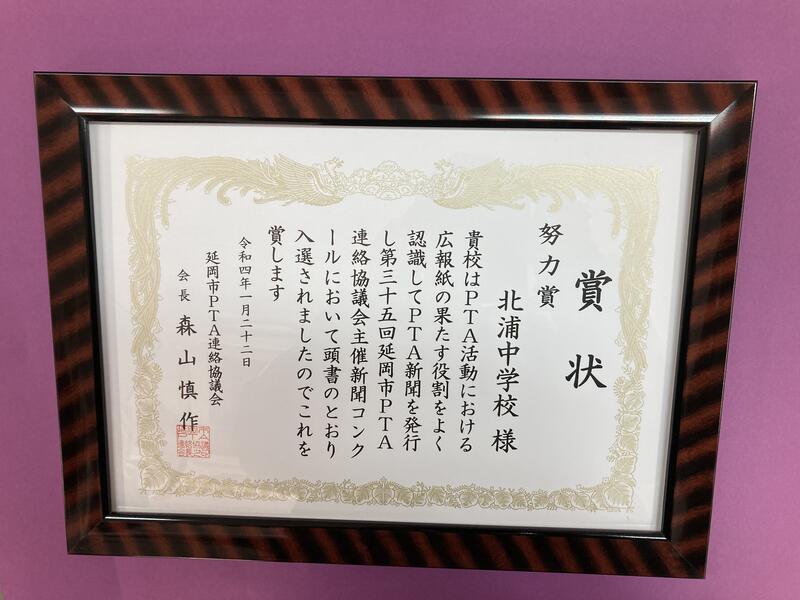 賞状
努力賞
北浦中学校 様
貴校はPTA活動における
広報紙の果たす役割をよく
認識してPTA新聞を発行
し第三十五回延岡市PTA
連絡協議会主催新聞コンク
ールにおいて頭書のとおり
入選されましたのでこれを
賞します
令和四年一月二十二日
延岡市PTA連絡協議会
会長 森山慎作